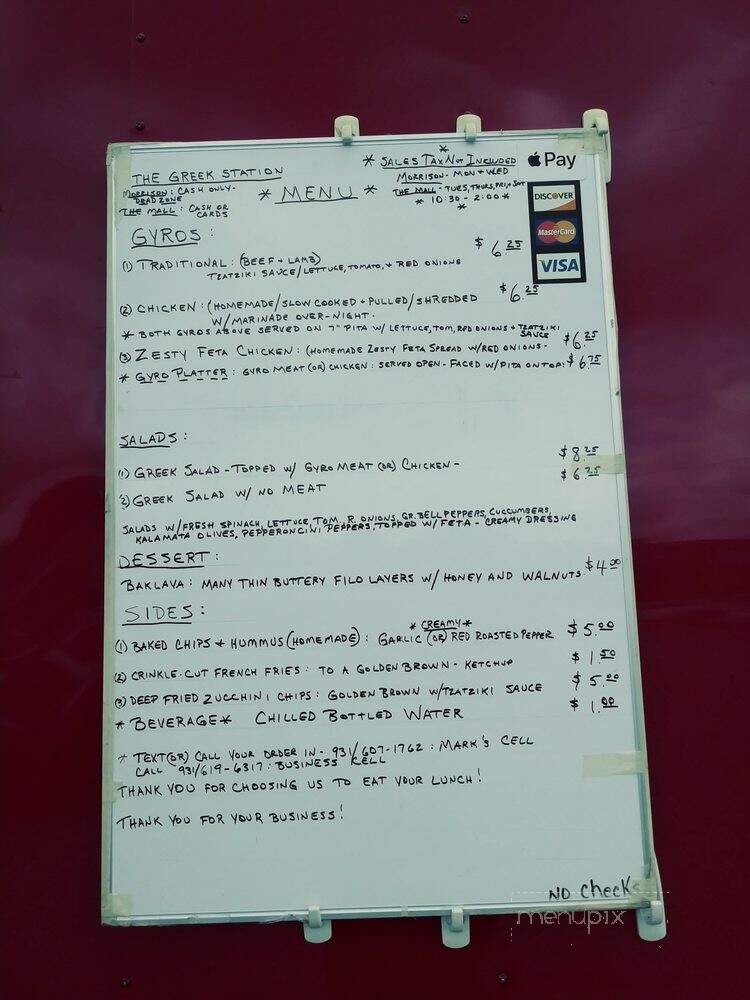 THE GREEK STATION
MORRISON: CASH ONLY-
DEAD ZONE
THE MALL: CASH OR
CARDS
* MENU *
*
* SALES TAX NOT INCLUDED
MORRISON- MON + WED
THE MALL - TUES, THURS, FRI, + SAT
* 10:30 - 2:00 *
*
Pay
DISCOVER
MasterCard
VISA
GYROS:
(1) TRADITIONAL: (BEEF + LAMB) $6.25
TZATZIKI SAUCE/LETTUCE, TOMATO, + RED ONIONS
(2) CHICKEN: (HOMEMADE/SLOW COOKED + PULLED/SHREDDED $6.25
W/MARINADE OVER-NIGHT.
* BOTH GYROS ABOVE SERVED ON 7" PITA W/ LETTUCE, TOM, RED ONIONS + TZATZIKI
SAUCE
(3) ZESTY FETA CHICKEN: (HOMEMADE ZESTY FETA SPREAD W/RED ONIONS- $6.25
* GYRO PLATTER: GYRO MEAT (OR) CHICKEN: SERVED OPEN-FACED W/PITA ON TOP: $6.75
SALADS:
(1) GREEK SALAD - TOPPED W/ GYRO MEAT (OR) CHICKEN - $8.25
(2) GREEK SALAD W/ NO MEAT $6.25
SALADS W/FRESH SPINACH, LETTUCE, TOM, R. ONIONS, GR. BELL PEPPERS, CUCCUMBERS,
KALAMATA OLIVES, PEPPERONCINI PEPPERS, TOPPED W/ FETA - CREAMY DRESSING
DESSERT:
BAKLAVA: MANY THIN BUTTERY FILO LAYERS W/ HONEY AND WALNUTS $4.00
SIDES:
* CREAMY *
(1) BAKED CHIPS + HUMMUS (HOMEMADE): GARLIC (OR) RED ROASTED PEPPER $5.00
(2) CRINKLE-CUT FRENCH FRIES: TO A GOLDEN BROWN - KETCHUP $1.50
(3) DEEP FRIED ZUCCHINI CHIPS: GOLDEN BROWN W/TZATZIKI SAUCE $5.00
* BEVERAGE * CHILLED BOTTLED WATER $1.00
* TEXT (OR) CALL YOUR ORDER IN - 931/607-1762: MARK'S CELL
CALL 931/619-6317: BUSINESS CELL
THANK YOU FOR CHOOSING US TO EAT YOUR LUNCH!
THANK YOU FOR YOUR BUSINESS!
NO checks
menupix